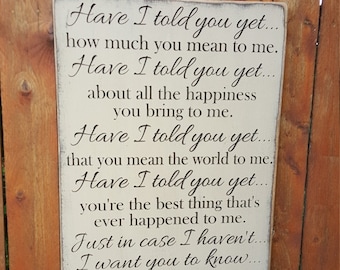 Have I told you yet...
how much you mean to me.
Have I told you yet...
about all the happiness
you bring to me.
Have I told you yet...
that you mean the world to me.
Have I told you yet...
you're the best thing that's
ever happened to me.
Just in case I haven't...
I want you to know...